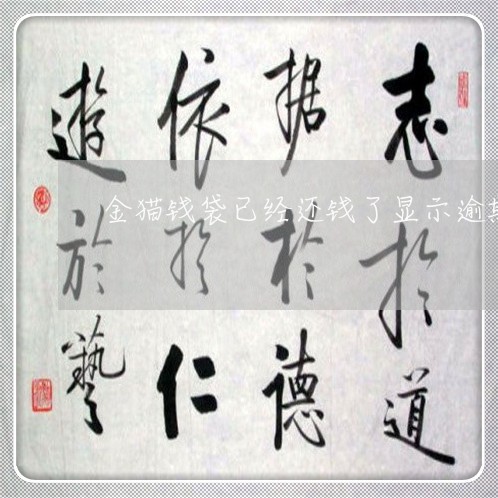 志於道
据於德
依於仁
遊於藝
金猫钱袋已经还钱了显示逾